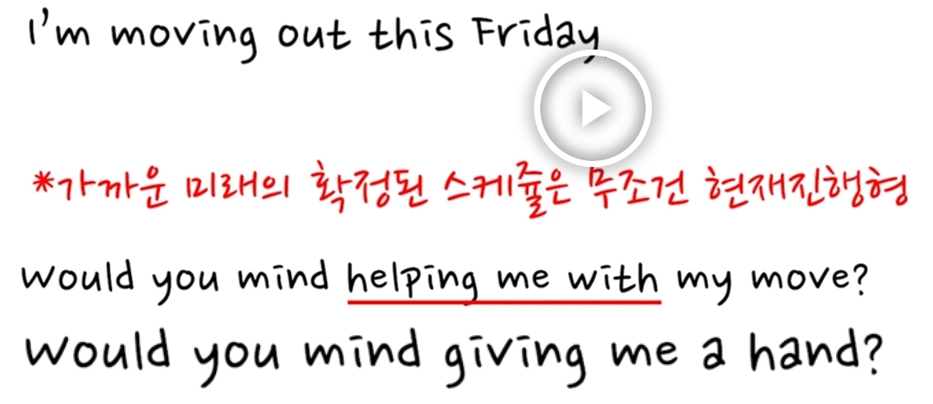 I'm moving out this Friday
*가까운 미래의 확정된 스케쥴은 무조건 현재진행형
Would you mind helping me with my move?
Would you mind giving me a hand?